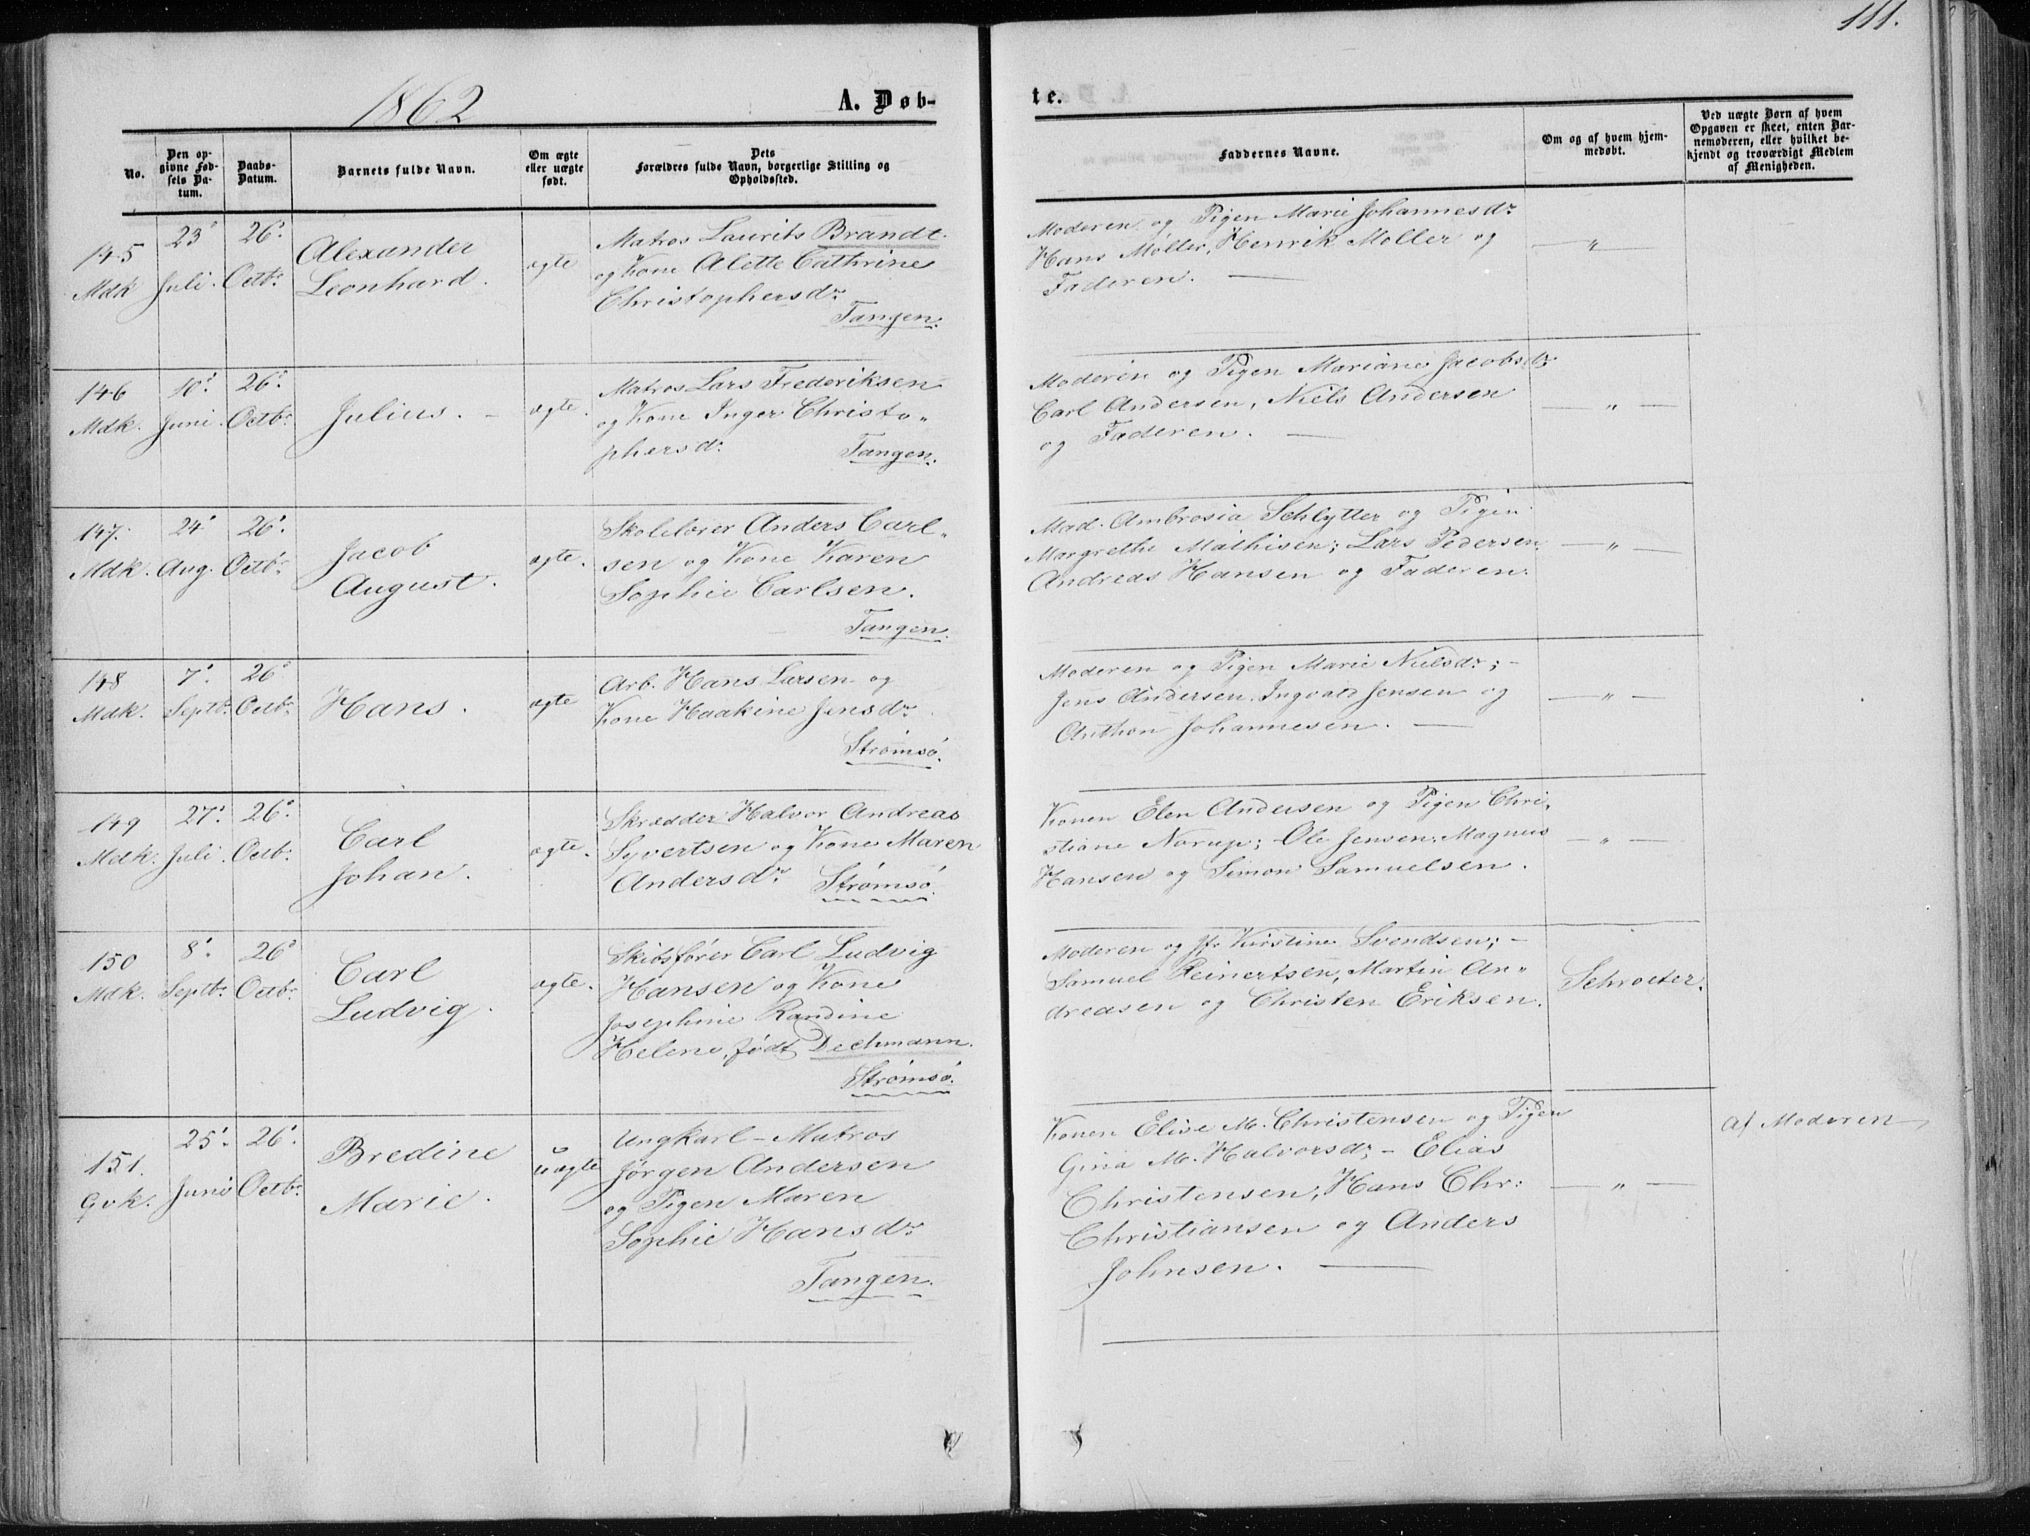 111.
1862
A. Døb-
te.
No.
Den op-
givne Fød-
sels Da-
tum.
Daabs-
Datum.
Barnets fulde Navn.
Om ægte
eller uægte
født.
Dets
Forældres fulde Navn, borgerlige Stilling og
Opholdssted.
Faddernes Navne.
Om og af hvem hjem-
medøbt.
Ved uægte Børn af hvem
Opgaven er skeet, enten Bar-
nemoderen, eller hvilket be-
kjendt og troværdigt Medlem
af Menigheden.
145
Mdk
23'
Juli.
26'.
Octbr.
Alexander
Leonhard.
ægte
Matros Laurits Brandt.
og Kone Alette Cathrine
Christophersdr.
Tangen.
Moderen og Pigen Marie Johannesdr.
Hans Møller, Henrik Møller og
Faderen. —
— " —
146
Mdk.
10'
Juni.
26'.
Octbr.
Julius. —
ægte.
Matros Lars Frederiksen
og Kone Inger Christo„
phersd:
Tangen.
Moderen og Pigen Mariane Jacobsdr.
Carl Andersen, Niels Andersen
og Faderen. —
— " —
147.
Mdk.
24'
Aug.
26'.
Octbr.
Jacob
August.
ægte.
Skolelærer Anders Carl„
sen og Kone Karen
Sophie Carlsen.
Tangen.
Mad. Ambrosia Schlytter og Pigen
Margrethe Mathisen; Lars Pedersen,
Andreas Hansen og Faderen.
— " —
148
Mdk.
7'
Septbr.
26'
Octbr.
Hans.
ægte
Arb. Hans Larsen og
Kone Haakine Jensdr.
Strømsø.
Moderen og Pigen Marie Nielsdr; -
Jens Andersen, Ingvald Jensen og
Anthon Johannesen. —
— " —
149
Mdk.
27'
Juli.
26'.
Octbr.
Carl
Johan.
ægte.
Skrædder Halvor Andreas
Syvertsen og Kone Maren
Andersdr. Strømsø.
Konen Elen Andersen og Pigen Chri„
stiane Norup; Ole Jensen, Magnus
Hansen og Simon Samuelsen.
— " —
150
Mdk.
8'.
Septbr.
26'
Octbr.
Carl
Ludvig.
ægte.
Skibsfører Carl Ludvig
Hansen og Kone
Josephine Randine
Helene, født Dechmann.
Strømsø.
Moderen og Jfr Kirstine Svendsen; -
Samuel Reinertsen, Martin An„
dreasen og Christen Eriksen.
Schrøeter.
151.
Gvk.
25'.
Juni
26'.
Octbr.
Bredine
Marie.
uægte
Ungkarl - Matros
Jørgen Andersen
og Pigen Maren
Sophie Hansdr.
Tangen.
Konen Elise M. Christensen og Pigen
Gina M. Halvorsdr; - Elias
Christensen, Hans Chr:
Christiansen og Anders
Johnsen. —
— " —
af Moderen